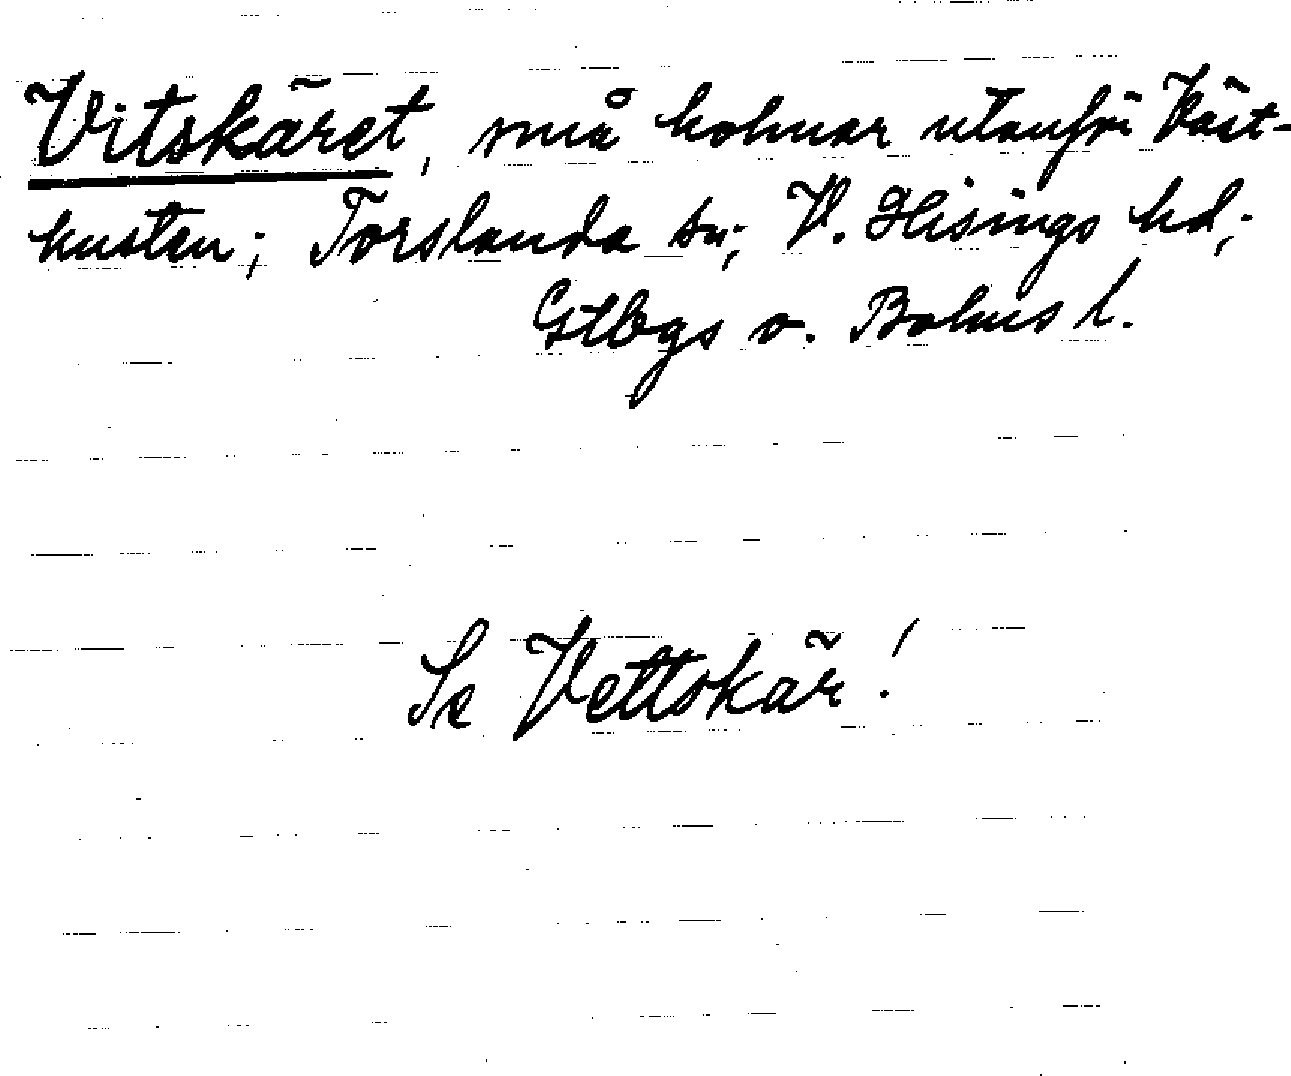 Vitskäret, små holmar utanför Väst-
kusten; Torslanda sn; V. Hisings hd;
Gtbgs o. Bohus l.
Se Vettskär!